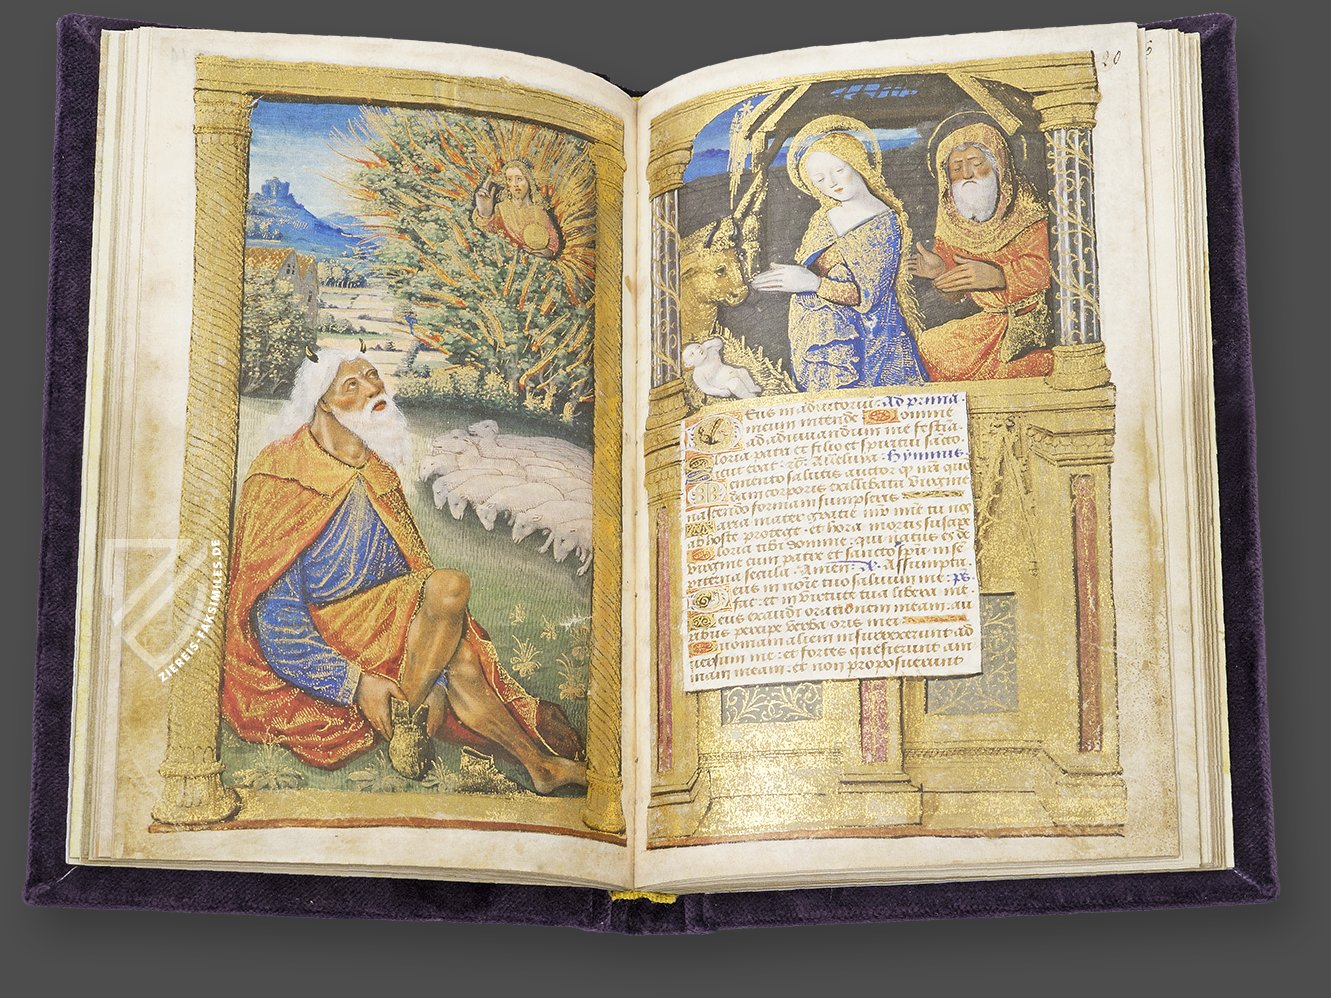 20
ZIEREIS-FAKSIMILES.DE
Eus in adiutoriu: Ad prima.
meum intende Domine
ad adiuuandum me festia.
loria patri et filio et spiritui sacto.
Sicut erat. Alleluya. Hymnus.
emento salutis auctor q nri quo
dam corporis exillibata uirgine
nascendo formam sumpseris
aria mater gratie mr mie tu nos
ab hoste protege et hora mortis suscipe
loria tibi domine qui natus es de
uirgine cum patre et sancto spu in se
piterna secula. Amen. a. Assumpta.
eus in noie tuo saluum me ps.
fac et in uirtute tua libera me
eus exaudi orationem meam au
ribus percipe uerba oris mei
noniam alieni insurrexerunt ad
uersum me et fortes quesierunt am
mam meam et non proposuerunt